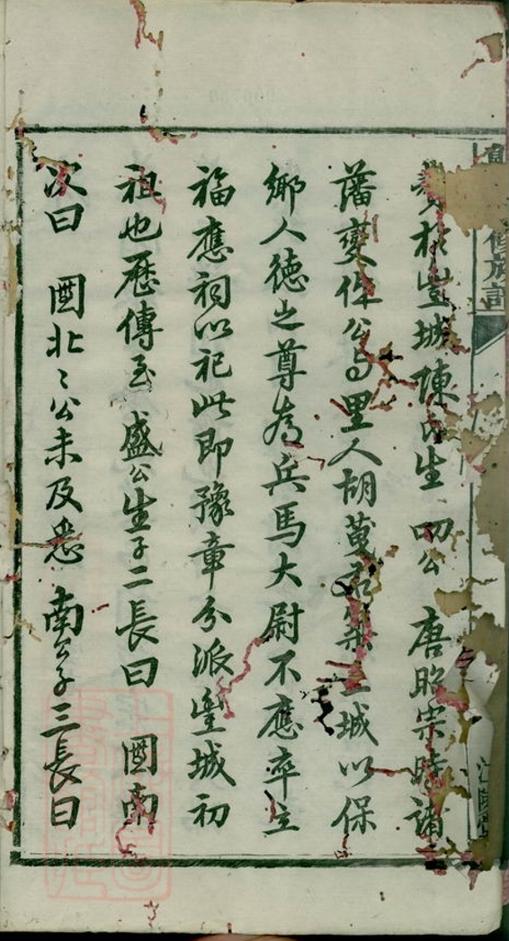 於豐城陳氏生 四公 唐昭宗時諸
藩變作公與里人胡蒐君築土城以保
鄉人德之尊為兵馬大尉不應卒立
福應祠以祀此即豫章分派豐城初
祖也歷傳至 盛公生子二長曰 國南
次曰 國北北公未及悉 南公子三長曰
修族